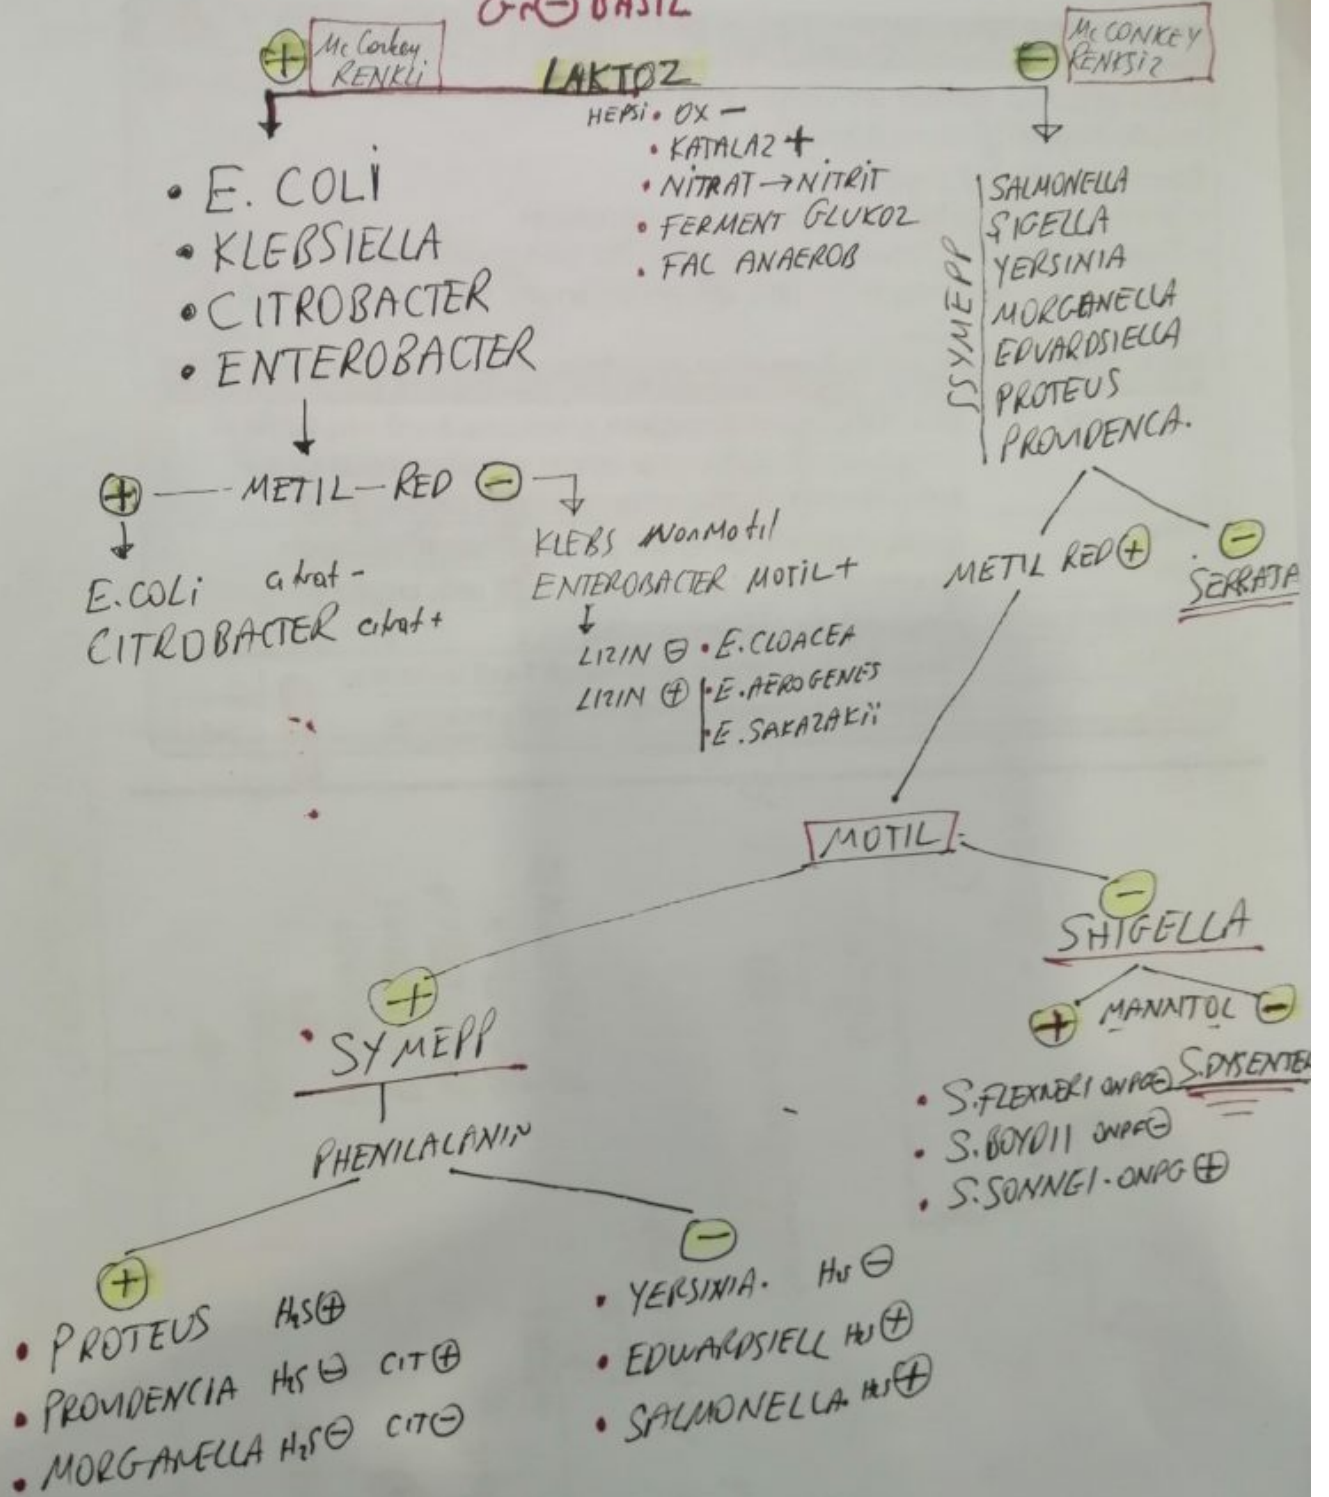 GR⊖ BASIL
⊕ Mc Conkey
RENKLİ
LAKTOZ
⊖ Mc CONKEY
RENKSİZ
HEPSİ • OX −
• KATALAZ +
• NİTRAT → NİTRİT
• FERMENT GLUKOZ
• FAC ANAEROB
• E. COLİ
• KLEBSIELLA
• CITROBACTER
• ENTEROBACTER
SSYMEPP
SALMONELLA
ŞIGELLA
YERSINIA
MORGANELLA
EDVARDSIELLA
PROTEUS
PROVIDENCA.
⊕ METIL-RED ⊖
E.COLİ citrat -
CITROBACTER citrat +
KLEBS NonMotil
ENTEROBACTER MOTİL+
LIZIN ⊖ • E.CLOACEA
LIZIN ⊕ • E.AEROGENES
• E.SAKAZAKİİ
METIL RED ⊕
⊖
SERRATA
MOTIL
⊖
SHIGELLA
⊕ MANNTOL ⊖
• S.FLEXNERI ONPG⊖ S.DYSENTE
• S.BOYDII ONPG⊖
• S.SONNEI-ONPG⊕
⊕
• SYMEPP
PHENILALANIN
⊕
• PROTEUS H₂S⊕
• PROVIDENCIA H₂S⊖ CIT⊕
• MORGANELLA H₂S⊖ CIT⊖
⊖
• YERSINIA. H₂S⊖
• EDWARDSIELL H₂S⊕
• SALMONELLA. H₂S⊕